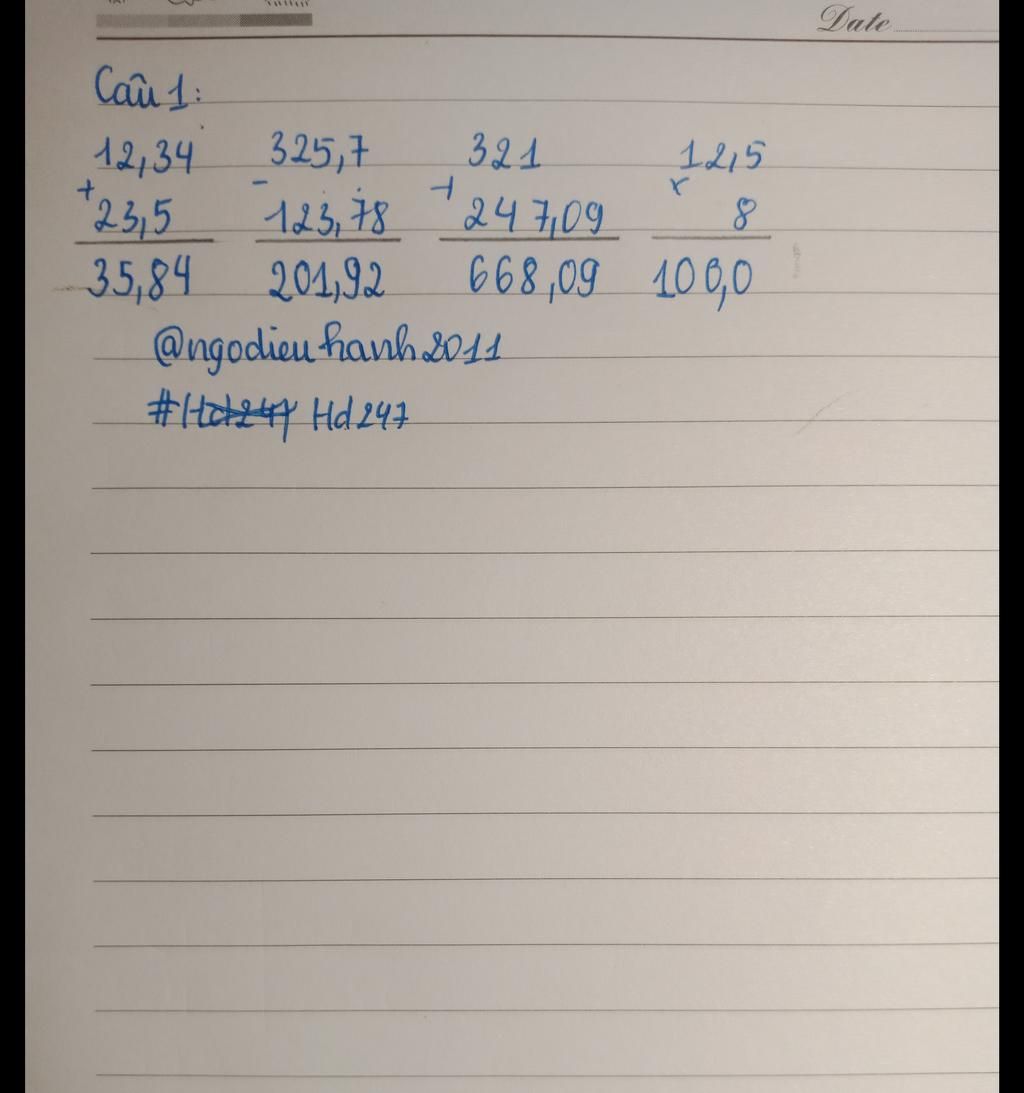 Date
Câu 1:
12,34 325,7 321 12,5
+ - + x
23,5 123,78 247,09 8
35,84 201,92 668,09 100,0
@ngodieuhanh2011
#Hd247 Hd247